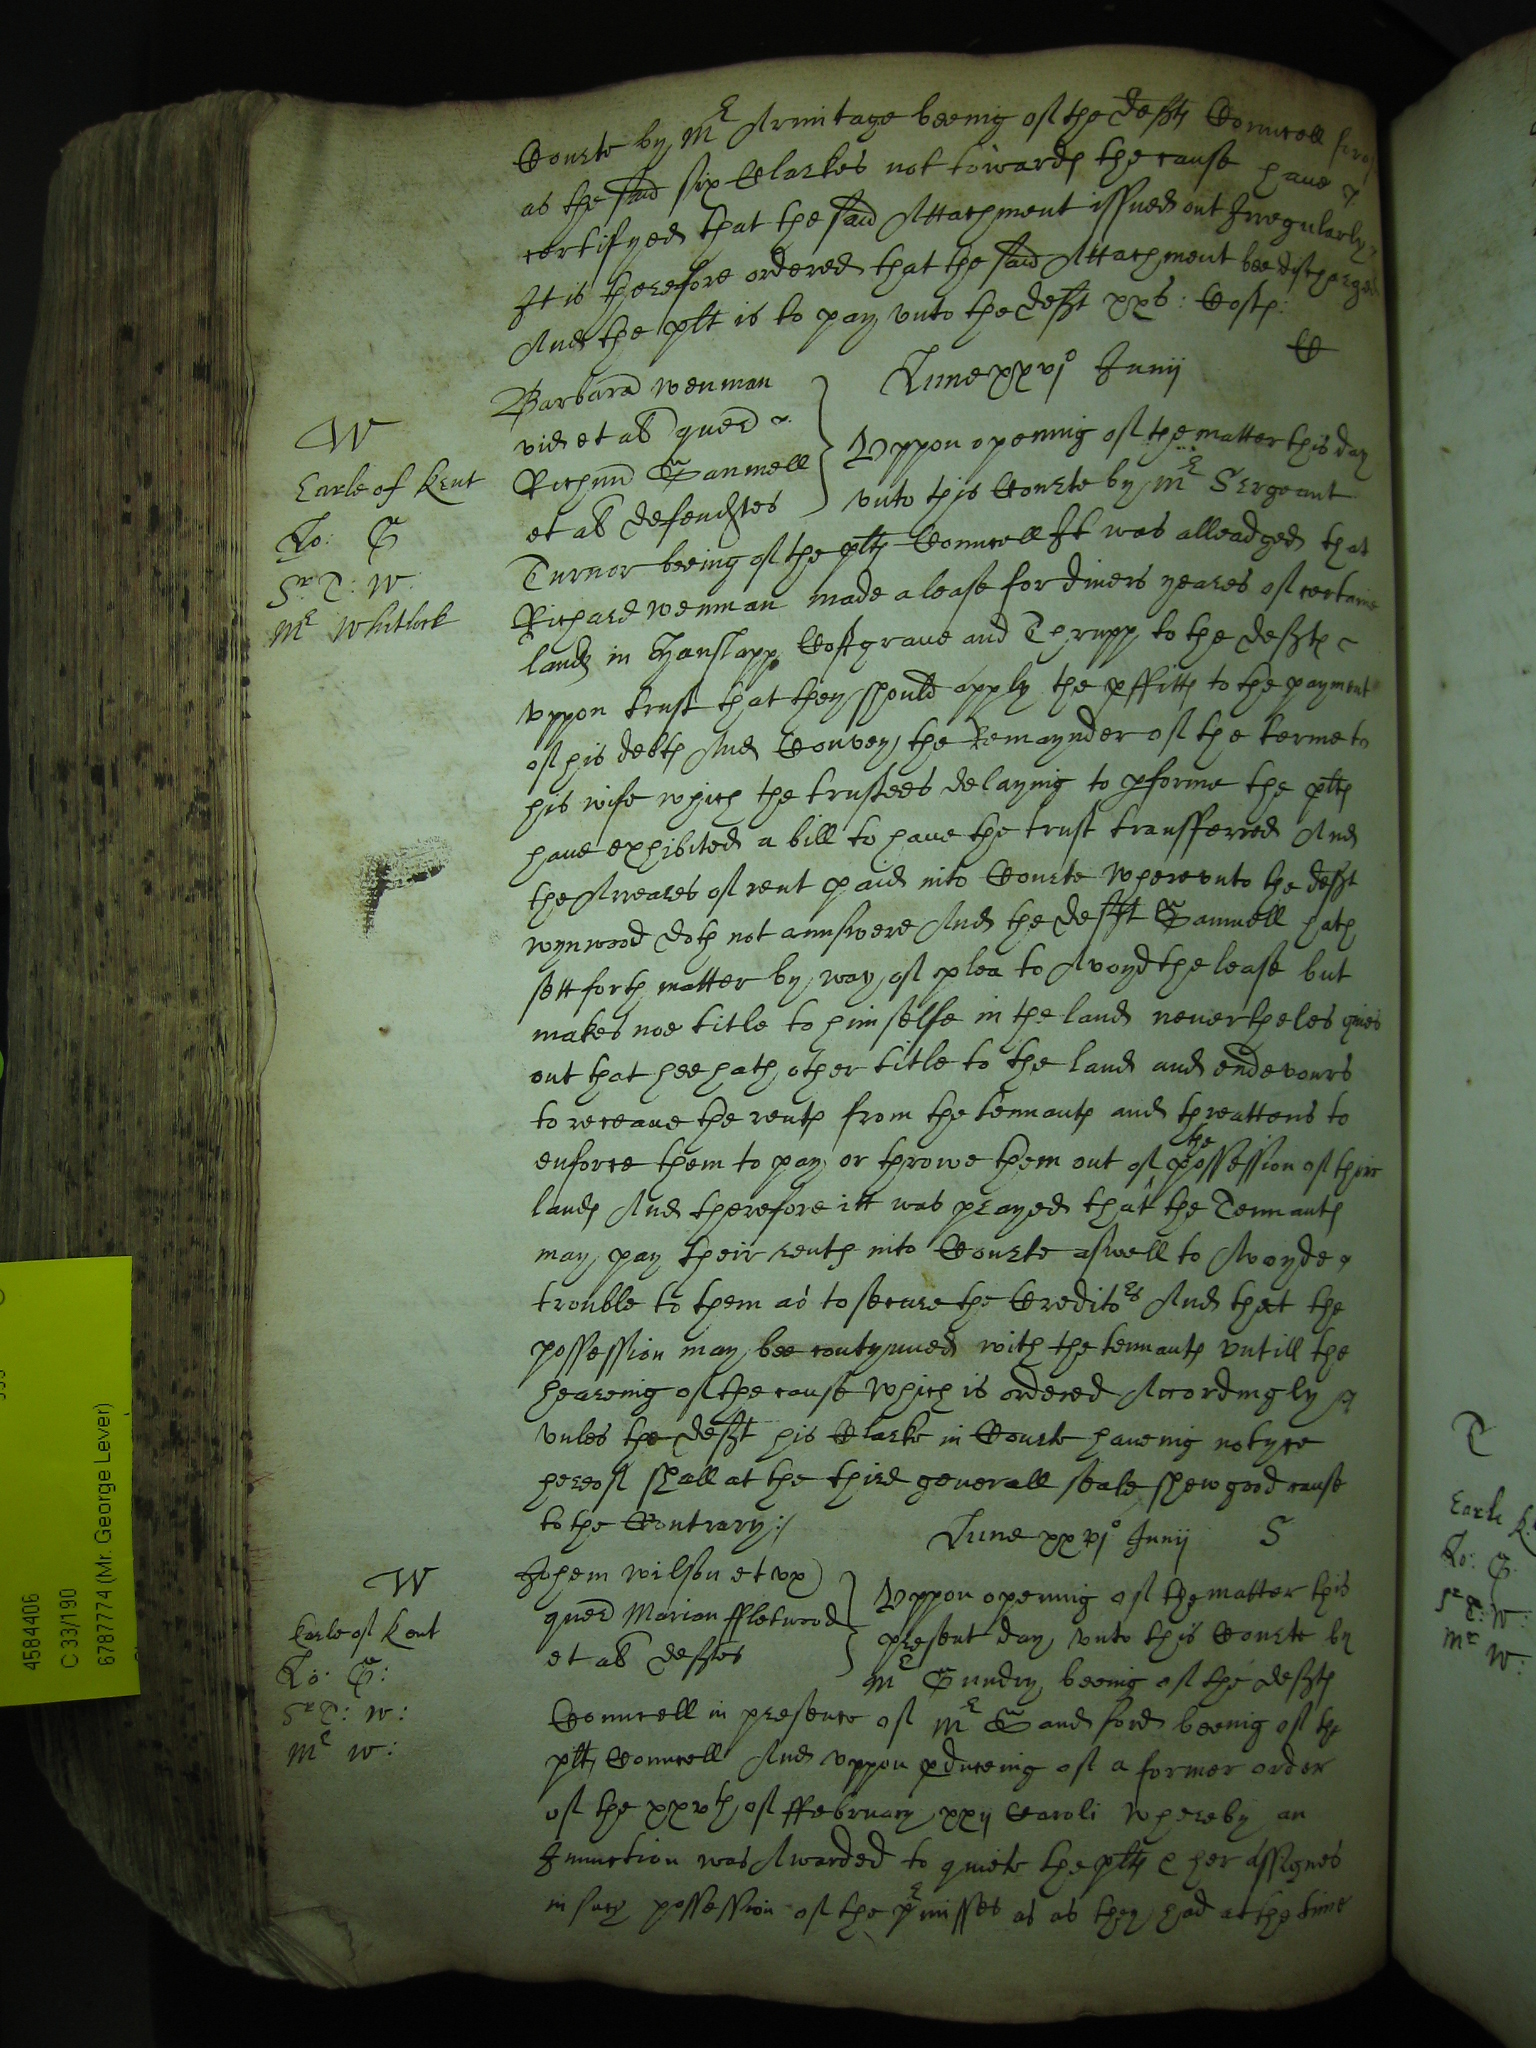 Courte by Mr Armitage beeing of the defts Councell
as the said six Clarkes not towards the cause have
certifyed that the said Attachment issued out Irregularly
It is therefore ordered that the said Attachment bee discharged
And the plt is to pay unto the deft xxs: Costs:
C
Lune xxvjo Junij
W
Earle of Kent
Lo: G
Sr T: W:
Mr Whitlock
Barbara Wenman
vid et al quer
Richum Samwell
et al defendtes
Uppon opening of the matter this day
unto this Courte by Mr Sergeant
Turnor beeing of the plts Councell It was alleadged that
Richard Wenman made a lease for divers yeares of certaine
lands in Hanslapp Cosgrave and Thrupp to the defts
uppon trust that they should apply the pffitts to the payment
of his debts And Convey the Remaynder of the terme to
his wife which the trustees delaying to pforme the plts
have exhibited a bill to have the trust transferred And
the Arreares of rent paid into Courte Whereunto the deft
Wynwood doth not annswere And the defft Samwell hath
sett forth matter by way of plea to Avoyd the lease but
makes noe title to himselfe in the land neverthelesse gives
out that hee hath other title to the land and endevours
to receave the rents from the tennants and threattens to
enforce them to pay or throwe them out of the possession of their
lands And therefore itt was prayed that the Tennants
may pay their rents into Courte aswell to Avoyde
trouble to them as to secure the Creditors And that the
possession may bee contynued with the tennants untill the
heareing of the cause Which is ordered Accordingly
unles the deft his Clarke in Courte haveing notyce
hereof shall at the third generall seale shew good cause
to the Contrary:/
Lune xxvjo Junij
S
W
Earle of Kent
Lo: G:
Sr T: W:
Mr W:
Johem Wilson et ux
quer Marian ffletwood
et al defftes
Uppon opening of the matter this
present day unto this Courte by
Mr Gundry beeing of the defts
Councell in presence of Mr Sandford beeing of the
plts Councell And uppon pduceing of a former order
of the xxvth of ffebruary xxij Caroli Whereby an
Iniunction was Awarded to quiete the plts & her assignes
in such possession of the prmisses as as they had at the time
4584406
C 33/190
6787774 (Mr. George Lever)
T
Earle K:
Lo: G
Sr T: W:
Mr W: